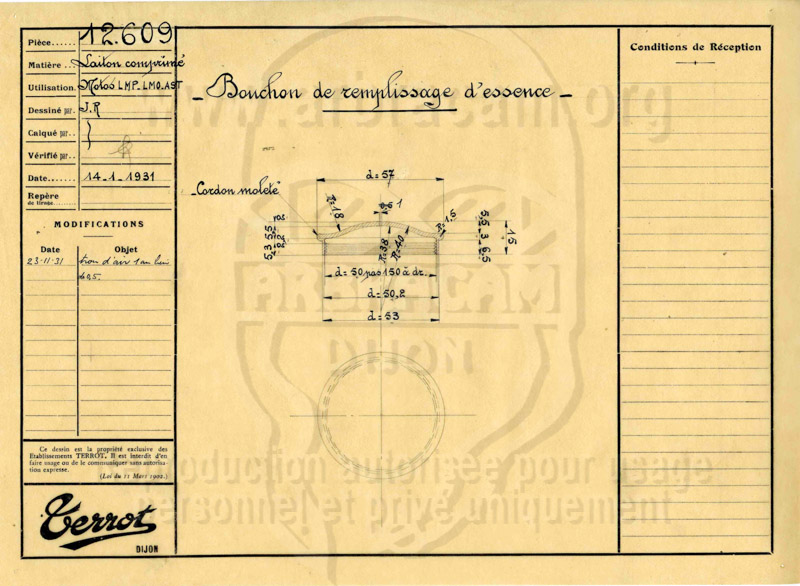 Pièce...... 12.609
Matière ... Laiton comprimé
Utilisation. Motos LMP. LMO. AST
Dessiné par. J.R
Calqué par..
Vérifié par..
Date....... 14-1-1931
Repère
de tirage.......
MODIFICATIONS
Date Objet
23-11-31 trou d'air 1 au lieu
de 0,5.
Ce dessin est la propriété exclusive des
Etablissements TERROT. Il est interdit d'en
faire usage ou de le communiquer sans autorisa-
tion expresse.
(Loi du 11 Mars 1902.)
Terrot
DIJON
www.arbracam.org
- Bouchon de remplissage d'essence -
Cordon moleté
d=57
R=18
1
R=1,5
5,5 3 6,5
15
R=38
R=40
d=50 pas 150 à dr.
d=50,2
d=53
ARBRACAM
DIJON
Reproduction autorisée pour usage
personnel et privé uniquement
Conditions de Réception